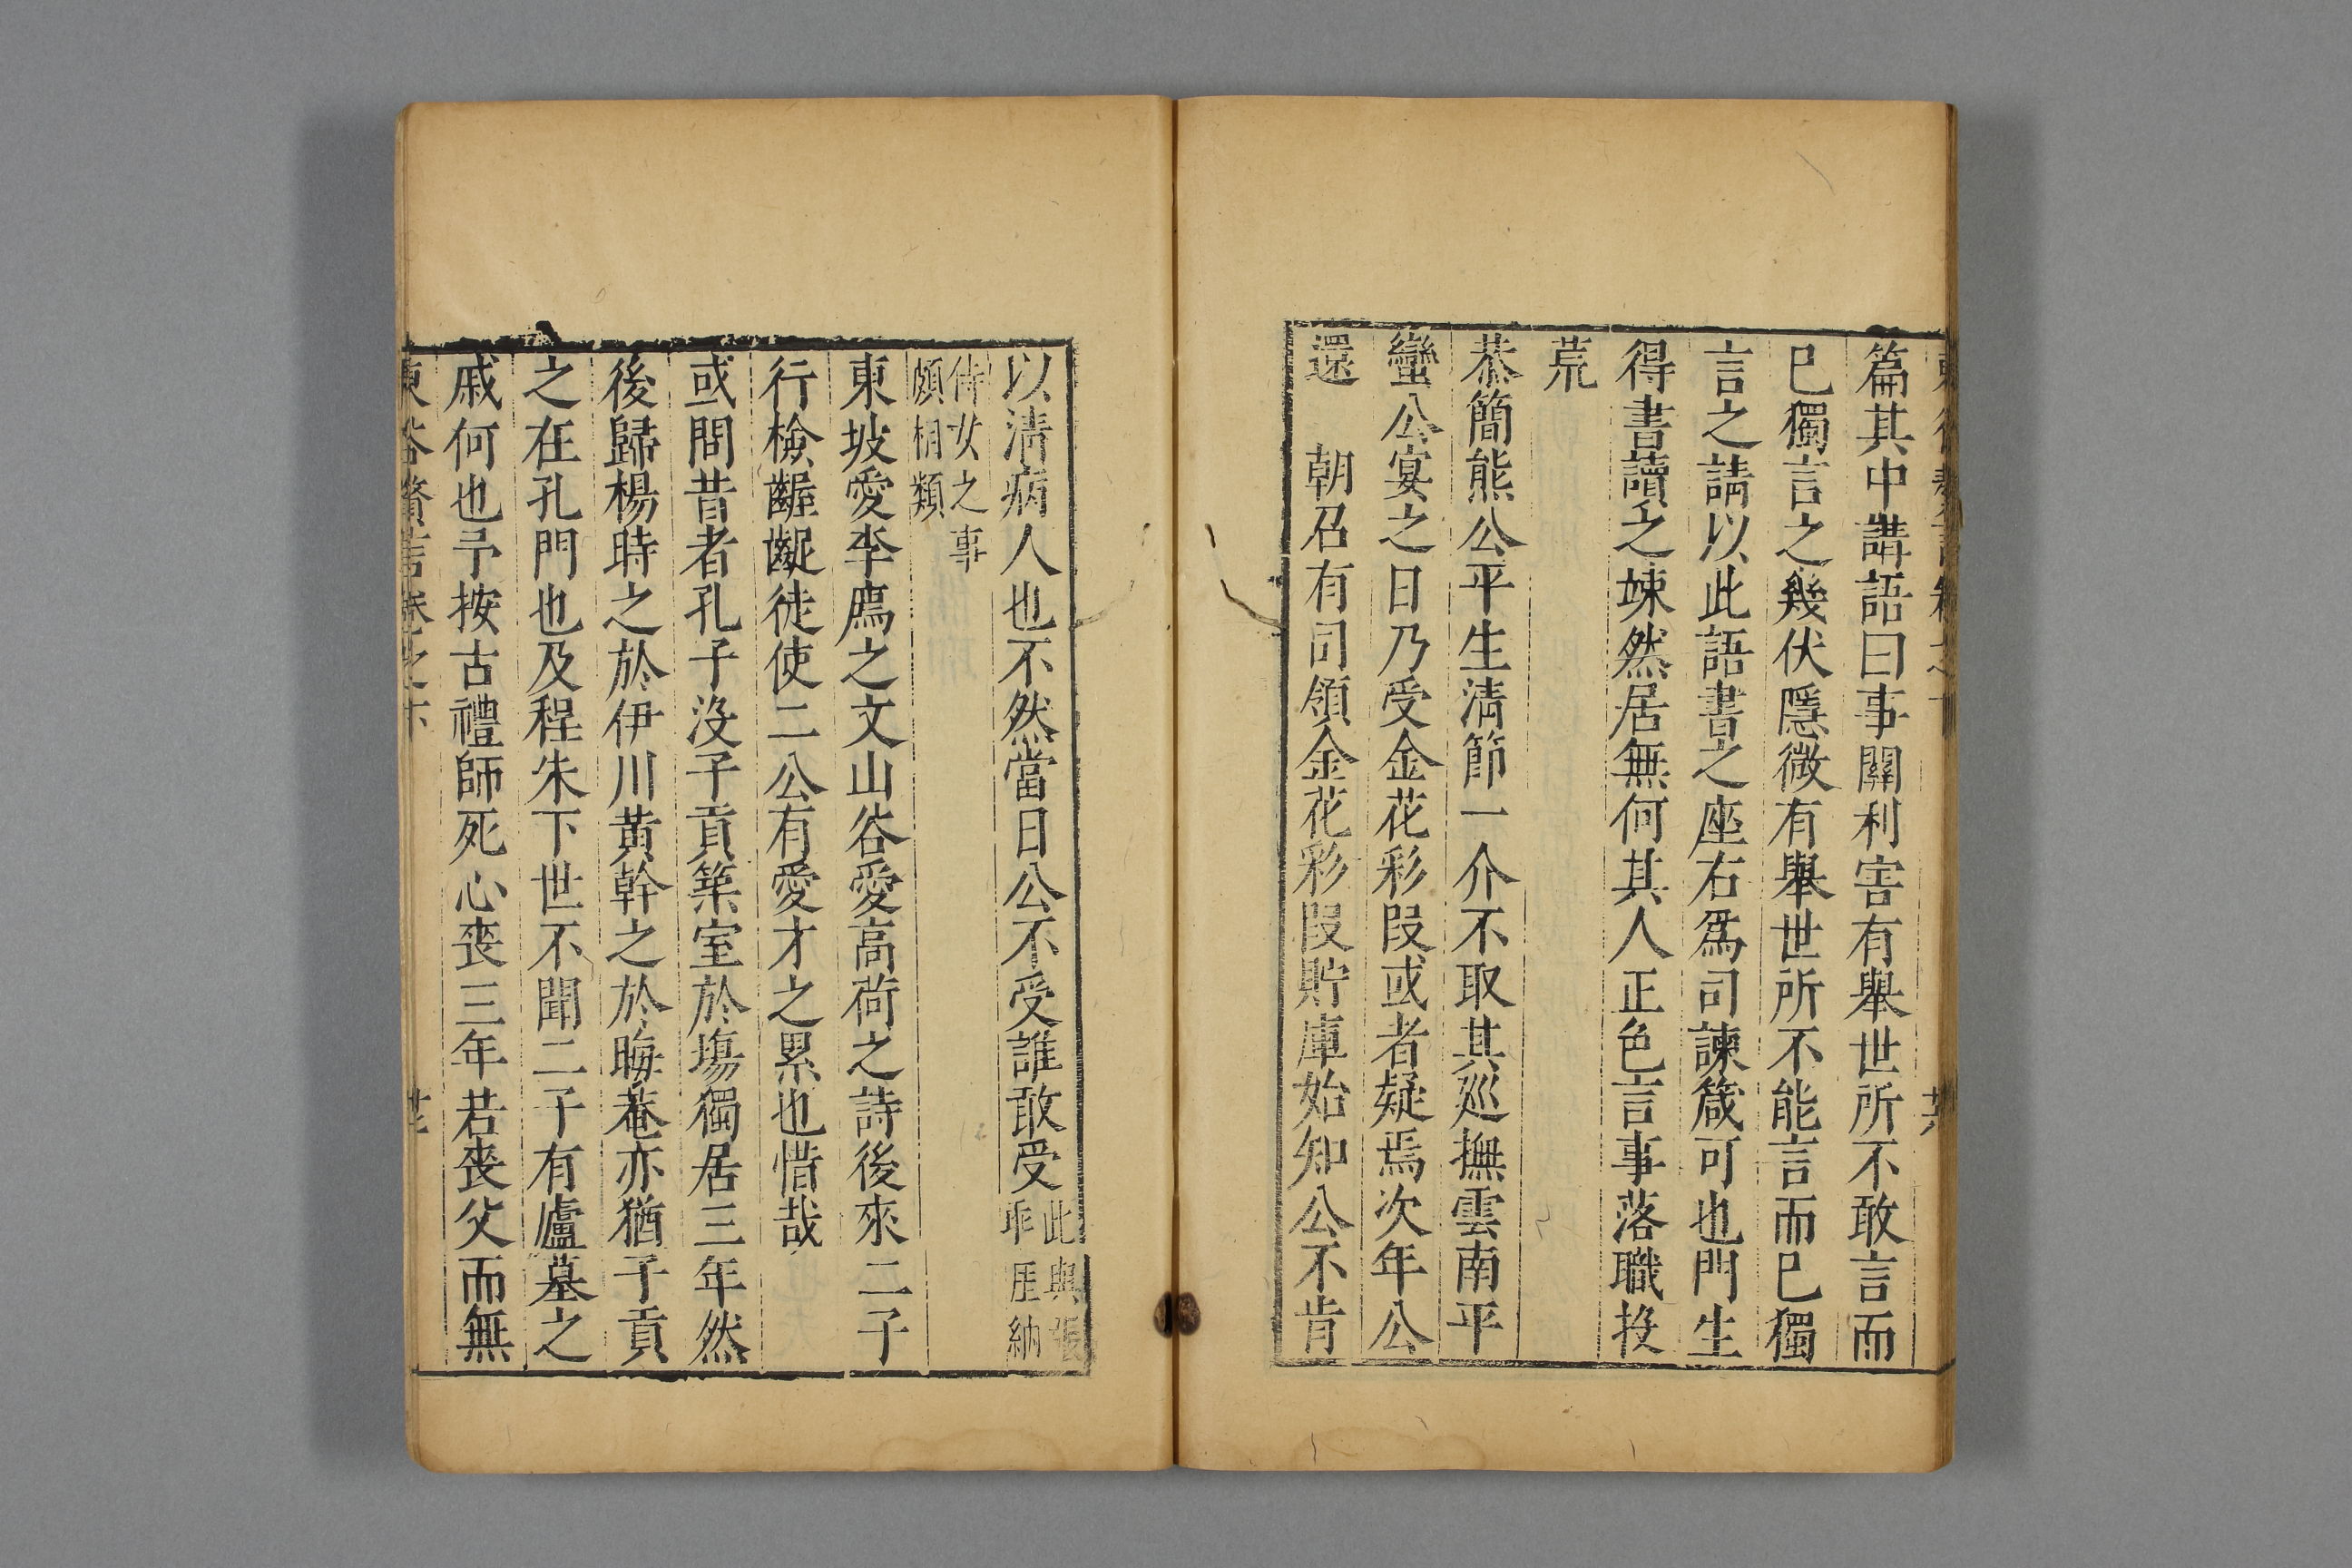 篇其中講語曰事關利害有舉世所不敢言而
已獨言之幾伏隱微有舉世所不能言而已獨
言之請以此語書之座右爲司諫箴可也門生
得書讀之竦然居無何其人正色言事落職投
荒
恭簡熊公平生淸節一介不取其巡撫雲南平
蠻公宴之日乃受金花彩叚或者疑焉次年公
還　朝召有司領金花彩叚貯庫始知公不肯
以淸病人也不然當日公不受誰敢受此與張
乖厓納
侍女之事
頗相類
東坡愛李廌之文山谷愛高荷之詩後來二子
行檢齷齪徒使二公有愛才之累也惜哉
或問昔者孔子没子貢築室於塲獨居三年然
後歸楊時之於伊川黃幹之於晦菴亦猶子貢
之在孔門也及程朱下世不聞二子有廬墓之
戚何也予按古禮師死心喪三年若喪父而無
東谷贅言卷之下